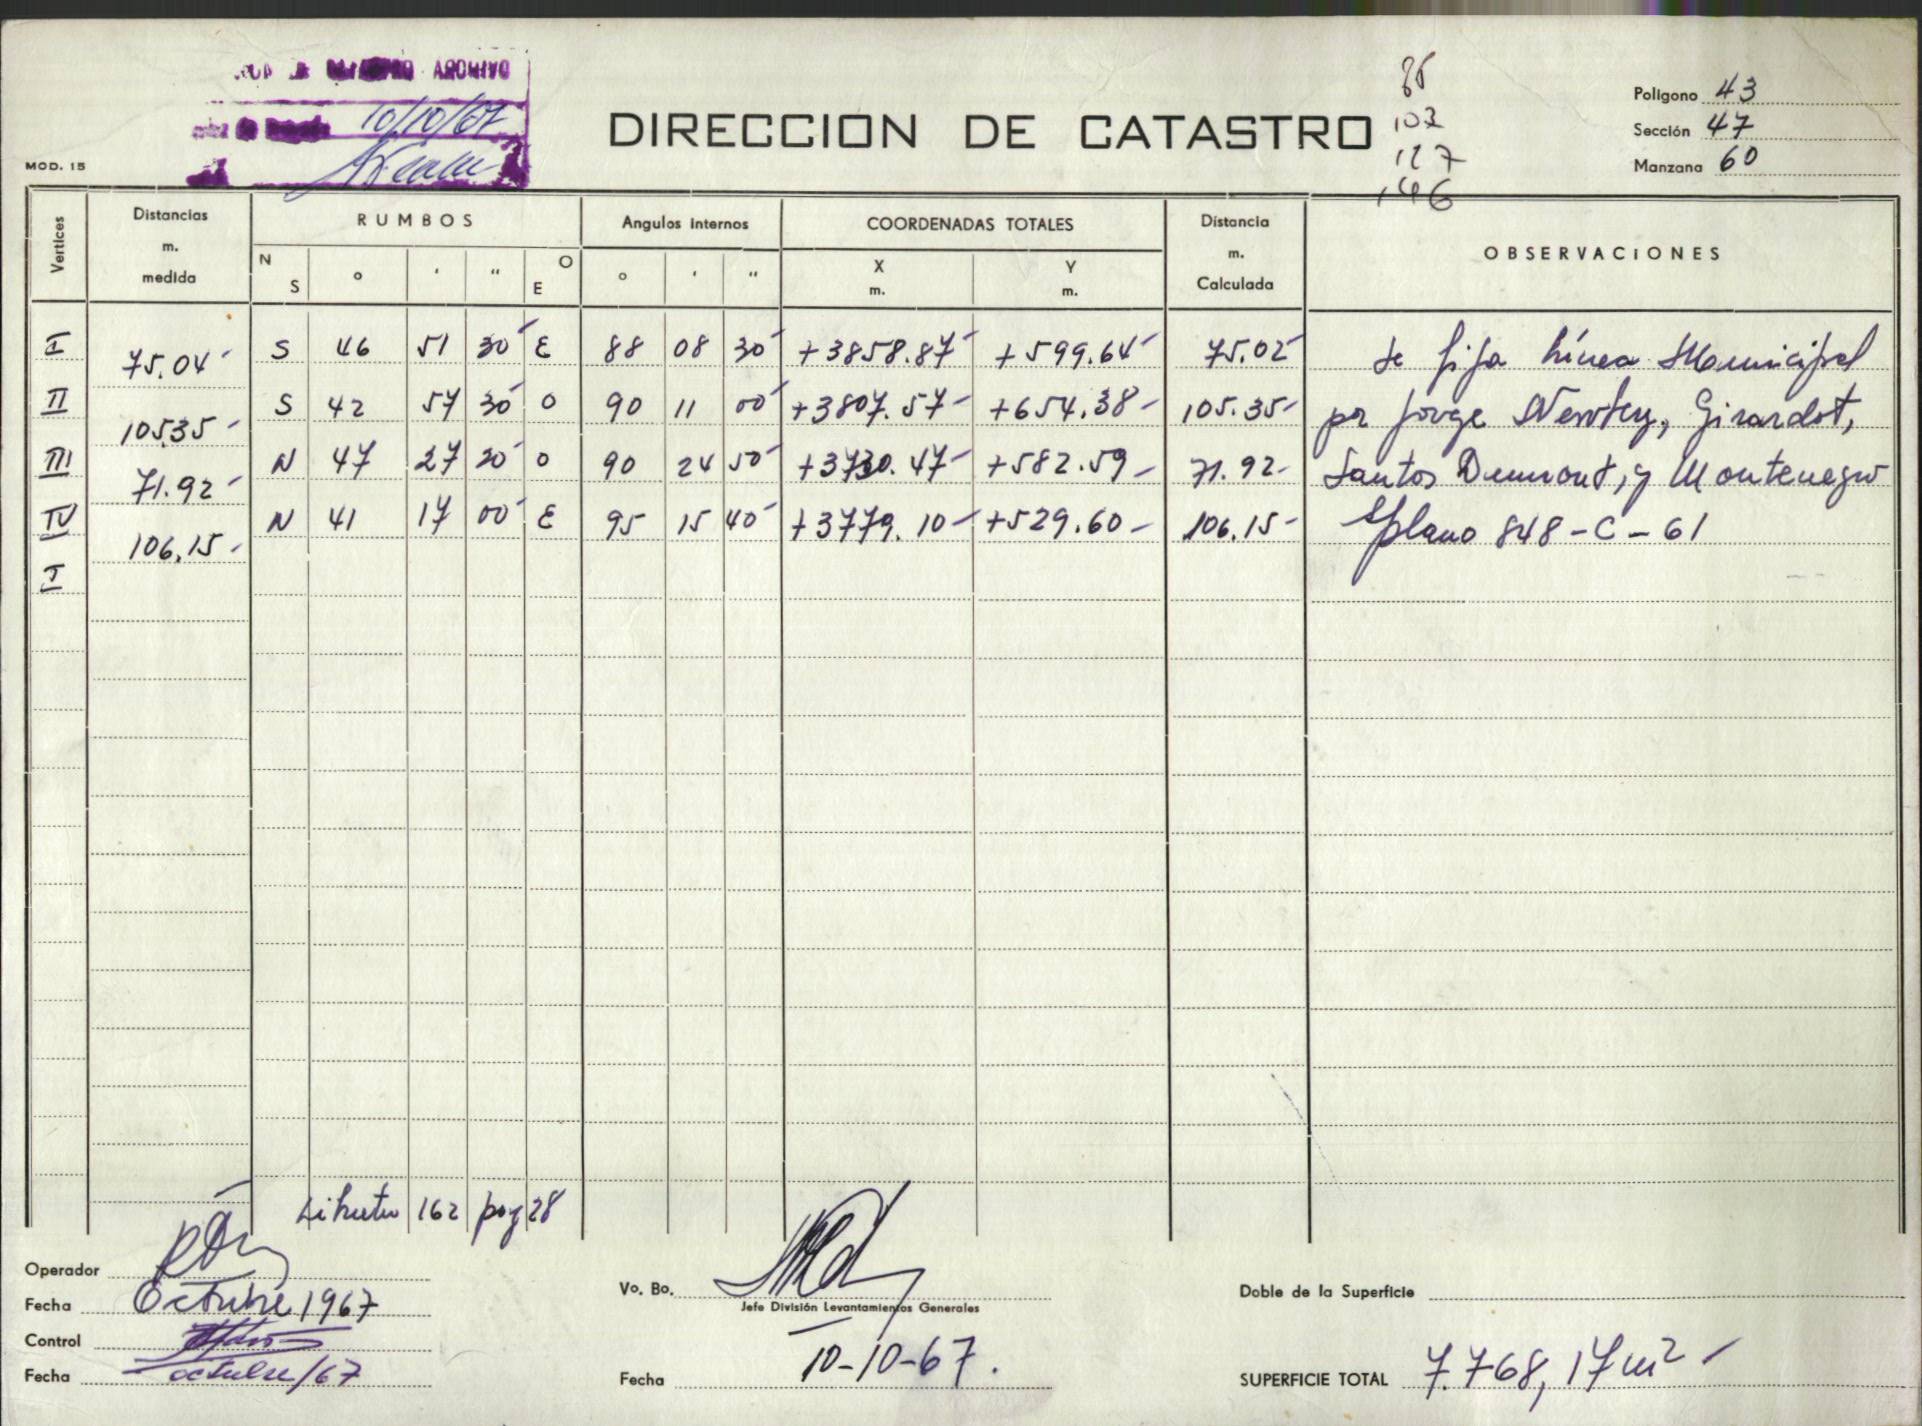 ARCHIVO
10/10/67
DIRECCION DE CATASTRO
85
102
127
146
Poligono 43
Sección 47
Manzana 60
MOD. 15
Vertices Distancias m. medida RUMBOS Angulos internos COORDENADAS TOTALES Distancia m. Calculada OBSERVACIONES
N S ° ' " O E ° ' " X m. Y m.
I S 46 51 30 E 88 08 30 +3858.87 +599.64 75.02 Se fija Línea Municipal
75.04
II S 42 57 30 O 90 11 00 +3807.57 +654.38 105.35 por Jorge Newbery, Girardot,
105.35
III N 47 27 30 O 90 24 50 +3730.47 +582.59 71.92 Santos Dumont, y Montenegro
71.92
IV N 41 17 00 E 95 15 40 +3779.10 +529.60 106.15 S/plano 848-C-61
106.15
I
Libreta 162 pag 28
Operador
Fecha Octubre 1967
Control
Fecha octubre/67
Vo. Bo.
Jefe División Levantamientos Generales
Fecha 10-10-67.
Doble de la Superficie
SUPERFICIE TOTAL 7.768,17 m²